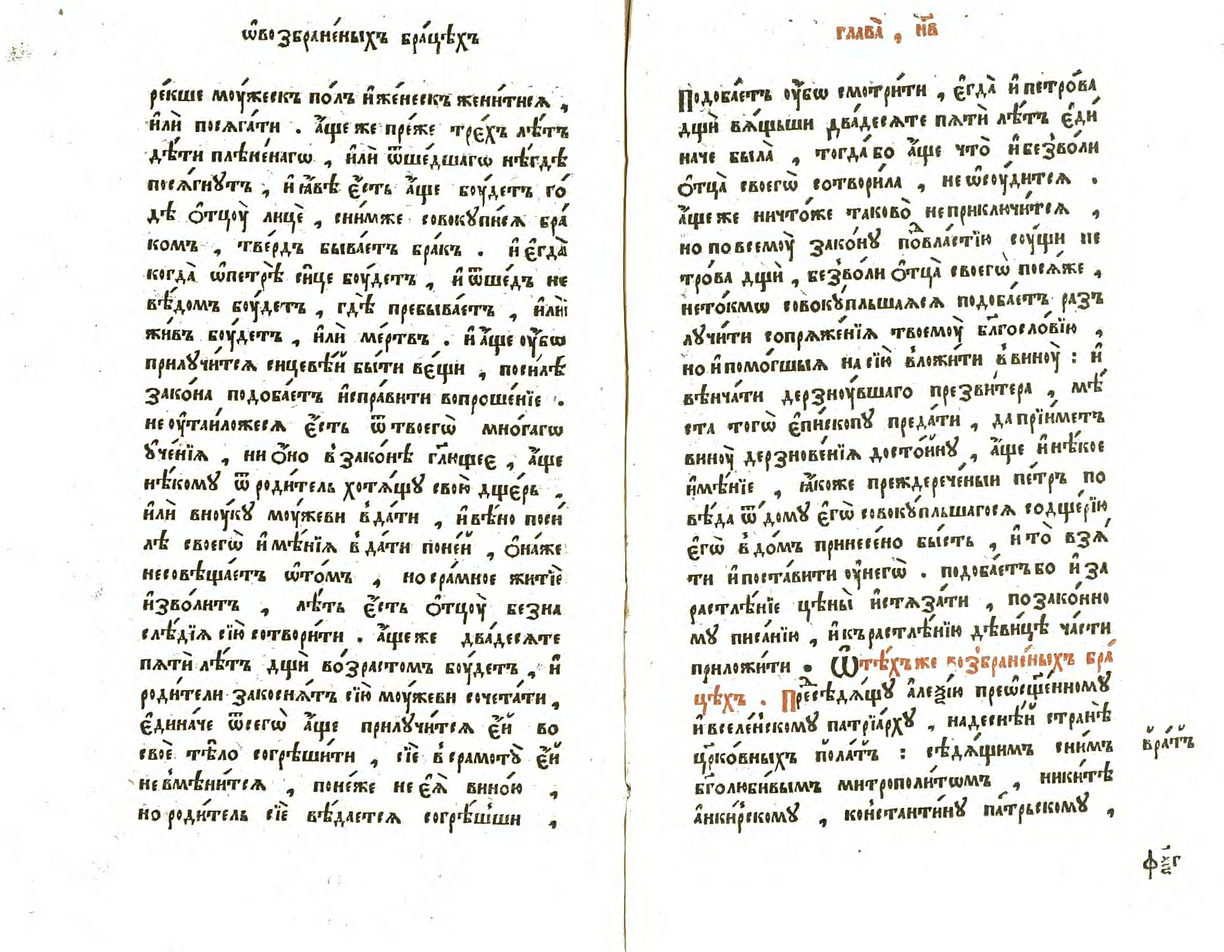 ѡ҆возбране́ныхъ бра́цѣхъ
ре́кше моу́жескъ по́лъ и҆же́нескъ жени́тисѧ ,
и҆лѝ посѧга́ти . а҆́ще же пре́же тре́хъ лѣ́тъ
дѣ́ти плѣне́нагѡ , и҆лѝ ѿше́дшагѡ нѣ́гдѣ
посѧ́гнутъ , и҆ ꙗ҆́вѣ є҆́сть а҆́ще боу́детъ го́
дѣ ѻ҆тцоу̀ лицѐ , сни́мже совокупи́сѧ бра́
комъ , тве́рдъ быва́етъ бра́къ . и҆ є҆гда̀
когда̀ ѡ҆петрѣ̀ си́це боу́детъ , и҆ ѿше́дъ не
вѣ́домъ боу́детъ , гдѣ̀ пребыва́етъ , и҆лѝ
жи́въ боу́детъ , и҆лѝ ме́ртвъ . и҆ а҆́ще оу҆́бѡ
прилучи́тсѧ сицевѣ́й бы́ти ве́щи , поси́лѣ
зако́на подоба́етъ и҆спра́вити вопроше́нїе .
не оу҆таи́ложесѧ є҆́сть ѿ твоегѡ̀ мно́гагѡ
у҆че́нїѧ , ни ѻ҆́но в зако́нѣ гл҃ющеє , а҆́ще
нѣ́кому ѿ роди́тель хотѧ́щꙋ свою̀ дще́рь ,
и҆лѝ вноу́ку моу́жеви в да́ти , и҆ вѣ́но поси́
лѣ своегѡ̀ и҆мѣ́нїѧ в да́ти поне́й , ѻ҆на́же
несовѣща́етъ ѡ҆то́мъ , но сра́мное житїѐ
и҆зво́литъ , лѣ́ть є҆́сть ѻ҆тцоу̀ безна
слѣ́дїѧ сїю̀ сотвори́ти . а҆́ще же два́десѧте
пѧтѝ лѣ́тъ дщѝ во́зрастомъ боу́детъ , и҆
роди́тели закоснѧ́тъ сїю̀ моу́жеви сочета́ти ,
є҆дина́че ѿсегѡ̀ а҆́ще прилучи́тсѧ є҆́й во
своѐ тѣ́ло согрѣши́ти , сїѐ в срамотꙋ̀ є҆́й
не вмѣни́тсѧ , поне́же не є҆ѧ̀ вино́ю ,
но роди́тель сїѐ вѣ́даетсѧ согрѣ́шши ,
глава̀ , н҃в
Подоба́етъ оу҆́бѡ смотри́ти , є҆гда̀ и҆ петро́ва
дщѝ вѧ́щьши два́десѧте пѧтѝ лѣ́тъ є҆ди
наче была̀ , тогда́ бо а҆́ще что̀ и҆ без во́ли
ѻ҆тца̀ своегѡ̀ сотвори́ла , не ѡ҆соу́дитсѧ .
а҆́ще же ничто́же таково̀ не приключи́тсѧ ,
но по всемоу̀ зако́нꙋ по́дⷣвластїю соу́щи пе
тро́ва дщѝ , без во́ли ѻ҆тца̀ своегѡ̀ посѧ́же ,
нето́кмѡ совокꙋ́пльшаѧсѧ подоба́етъ разъ
лучи́ти сопрѧже́нїѧ твоемоу̀ бл҃госло́вїю ,
но и҆ помо́гшыѧ на сїю̀ вложи́ти в виноу̀ : и҆
вѣнча́ти дерзноу́вшаго презви́тера , мѣ́
ста тогѡ̀ є҆пи́скопꙋ преда́ти , да прїи́метъ
виноу̀ дерзнове́нїѧ досто́йну , а҆́ще и҆ нѣ́кое
и҆мѣ́нїе , ꙗ҆́коже преждерече́ныи пе́тръ по
вѣ́да ѿ до́му є҆гѡ̀ совокꙋ́пльшагосѧ содще́рїю
є҆гѡ̀ в до́мъ принесе́но бы́сть , и҆ то̀ взѧ́
ти и҆ поста́вити оу҆ негѡ̀ . подоба́етъ бо и҆ за
растлѣ́нїе цѣны̀ и҆стѧза́ти , по зако́нно
му писа́нїю , и҆ къ растлѣ́нїю дѣви́цѣ ча́сти
приложи́ти . Ѿтѣ́хъ же возбране́ныхъ бра́
цѣхъ . Предⷣсѣдѧ́щꙋ а҆леѯі́ю преѡ҆сщ҃е́нномꙋ
и҆ вселе́нскому патрїа́рхꙋ , на десне́й странѣ̀
цр҃ко́вныхъ пола́тъ : сѣдѧ́щимъ сни́мъ
бг҃олюби́вымъ митрополи́тѡмъ , ники́тѣ
а҆нки́рскомꙋ , коⷩ҇стантинꙋ па́трьскому ,
бра́тъ